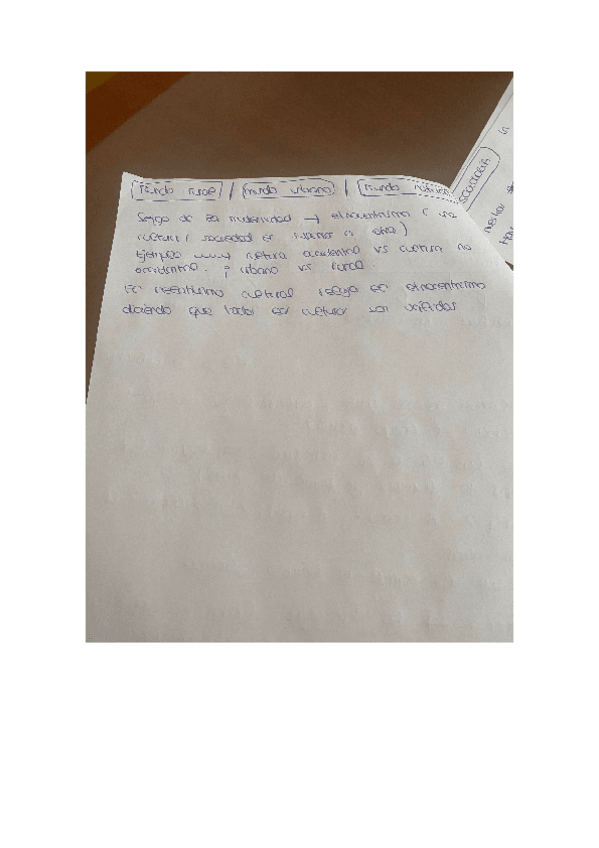 Mundo rural / mundo urbano / Mundo
Sesgo de la modernidad → etnocentrismo ( una
cultura / sociedad es superior a otra )
Ejemplo cultura occidental vs cultura no
occidental. ; urbano vs rural.
El relativismo cultural relaja el etnocentrismo
diciendo que todas las culturas son válidas
SOCIOLOGÍA